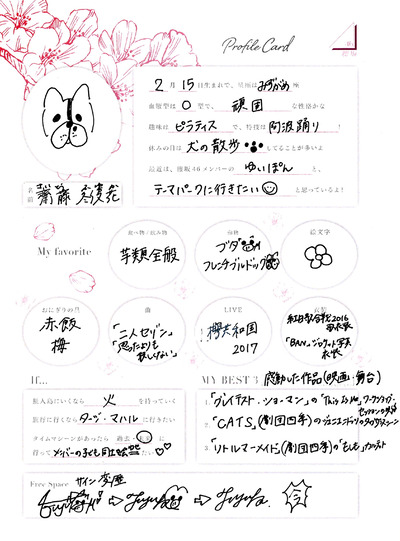 Profile Card
2月15日生まれで、星座はみずがめ座
血液型はO型で、頑固な性格かな
趣味はピラティスで、特技は阿波踊り!
休みの日は犬の散歩してることが多いよ
最近は、欅坂46メンバーのゆいぽんと、
テーマパークに行きたいと思っているよ!
名前 齋藤冬優花
My favorite
食べ物/飲み物
芋類全般
動物
ブタ
フレンチブルドッグ
絵文字
おにぎりの具
赤飯
梅
曲
「二人セゾン」
「思ったよりも寂しくない」
LIVE
欅共和国
2017
衣装
紅白歌合戦2016
衣装
「BAN」ジャケット写真
衣装
If...
無人島にいくなら火を持っていく
旅行に行くならタージ・マハルに行きたい
タイムマシーンがあったら過去・未来に
行ってメンバーの子ども見たい♡♡
MY BEST 3 感動した作品(映画・舞台)
1.「グレイテスト・ショーマン」の「This Is Me」ワークショップ
セッションの
2.「CATS」(劇団四季)の
3.「リトルマーメイド」(劇団四季)の
Free Space サイン変歴
⇨ ⇨ Fuyuka.